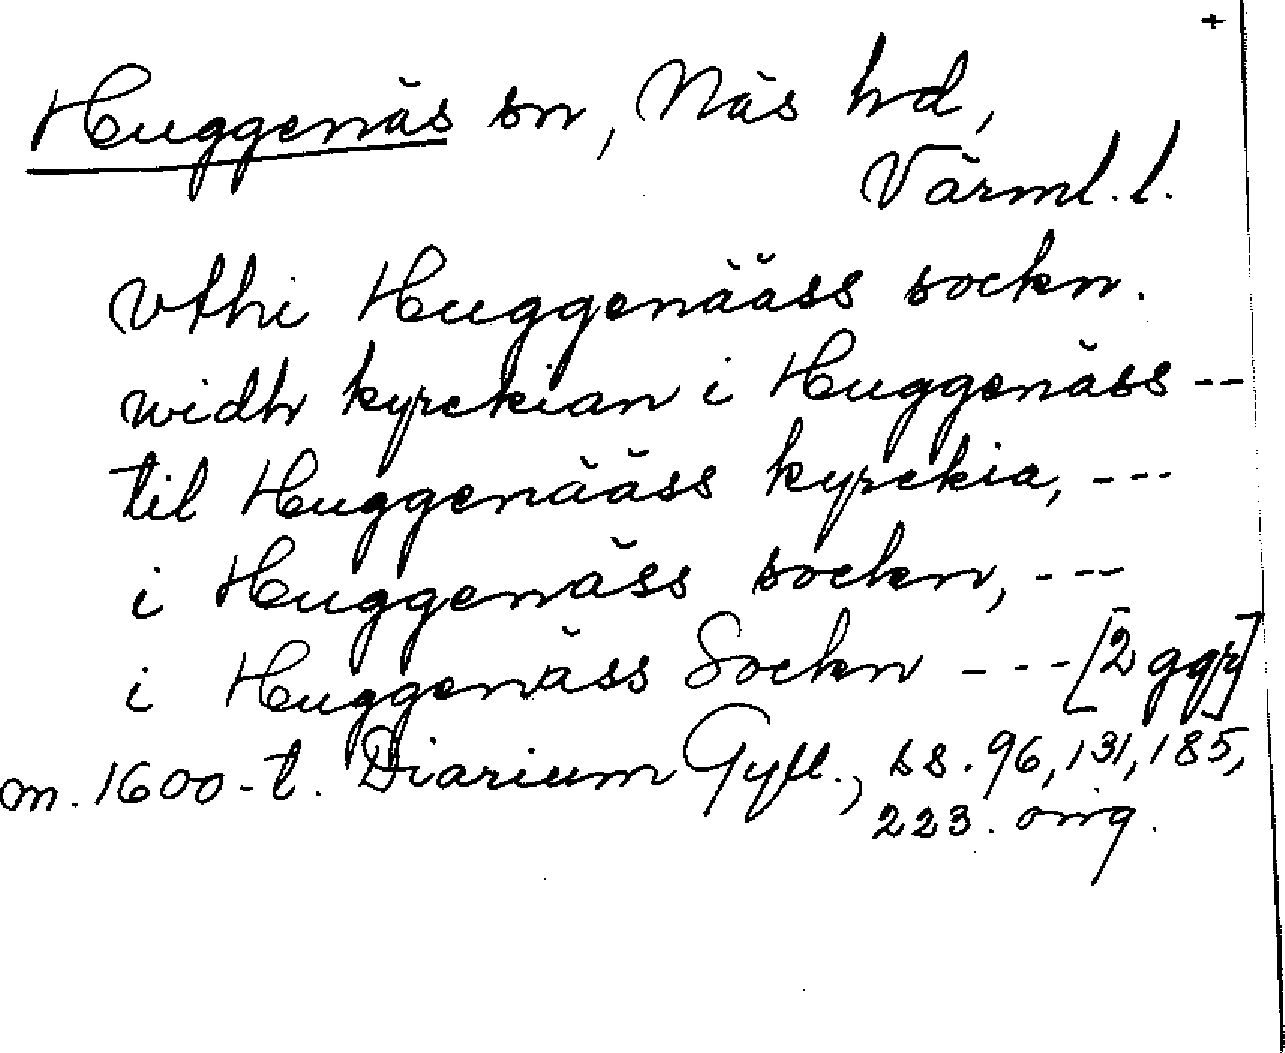 +
Huggenäs sn, Näs hd,
Värml. l.
Vthi Huggenääss sockn.
widh kyrckian i Huggenäss --
til Huggenääss kyrckia, ---
i Huggenäss sockn, ---
i Huggenäss Sockn --- [2 ggr]
m. 1600-t. Diarium Gyll., ss. 96, 131, 185,
223. orig.